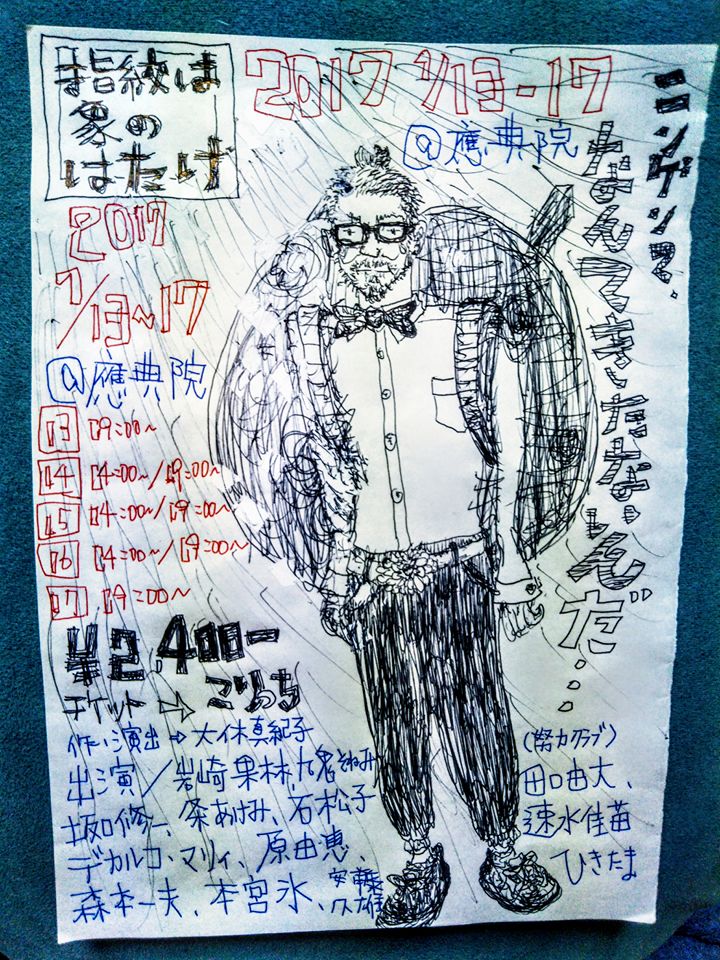 指紋は
象の
はたけ
2017 1/13-17
@應典院
ニンゲンて、
なんてきたないんだ...
2017
1/13~17
@應典院
13 19:00~
14 14:00~/19:00~
15 14:00~/19:00~
16 14:00~/19:00~
17 19:00~
¥2,400ー
チケット⇨こりっち
作・演出⇨大体真紀子
出演/岩崎果林、九鬼そねみ
坂口修一、条あけみ、石松子
デカルコ・マリィ、原由恵、
森本一夫、本宮氷、安藤久雄
(努力クラブ)
田口由大、
速水佳苗
ひきたま